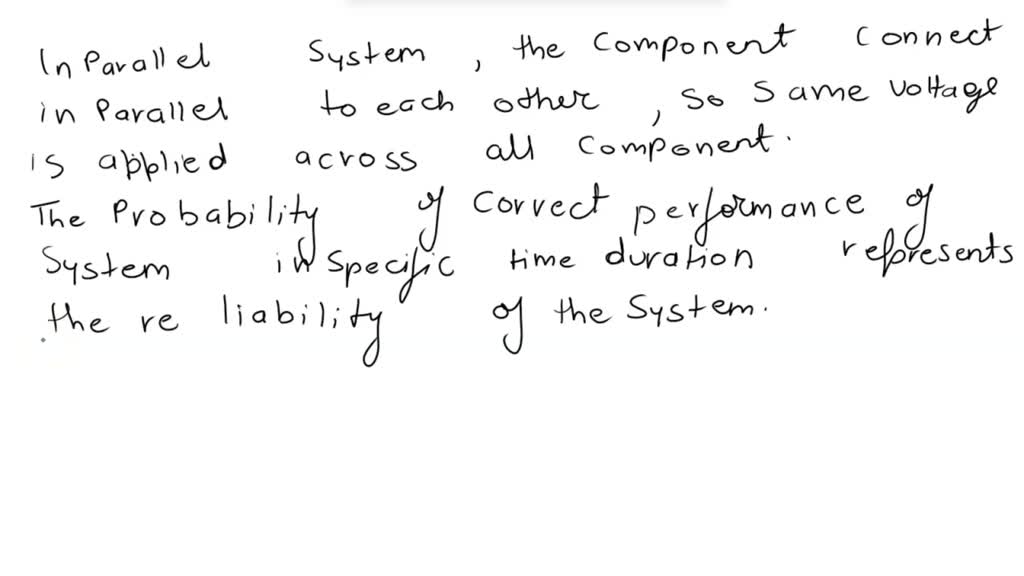 In Parallel System, the component connect
in Parallel to each other, so same voltage
is applied across all component.
The Probability of correct performance of
System in specific time duration represents
the re liability of the System.